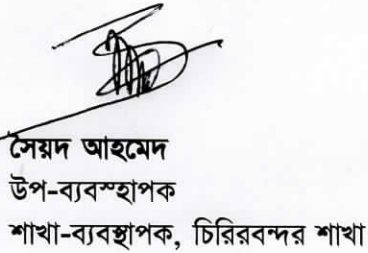 সৈয়দ আহমেদ
উপ-ব্যবস্হাপক
শাখা-ব্যবস্থাপক, চিরিরবন্দর শাখা